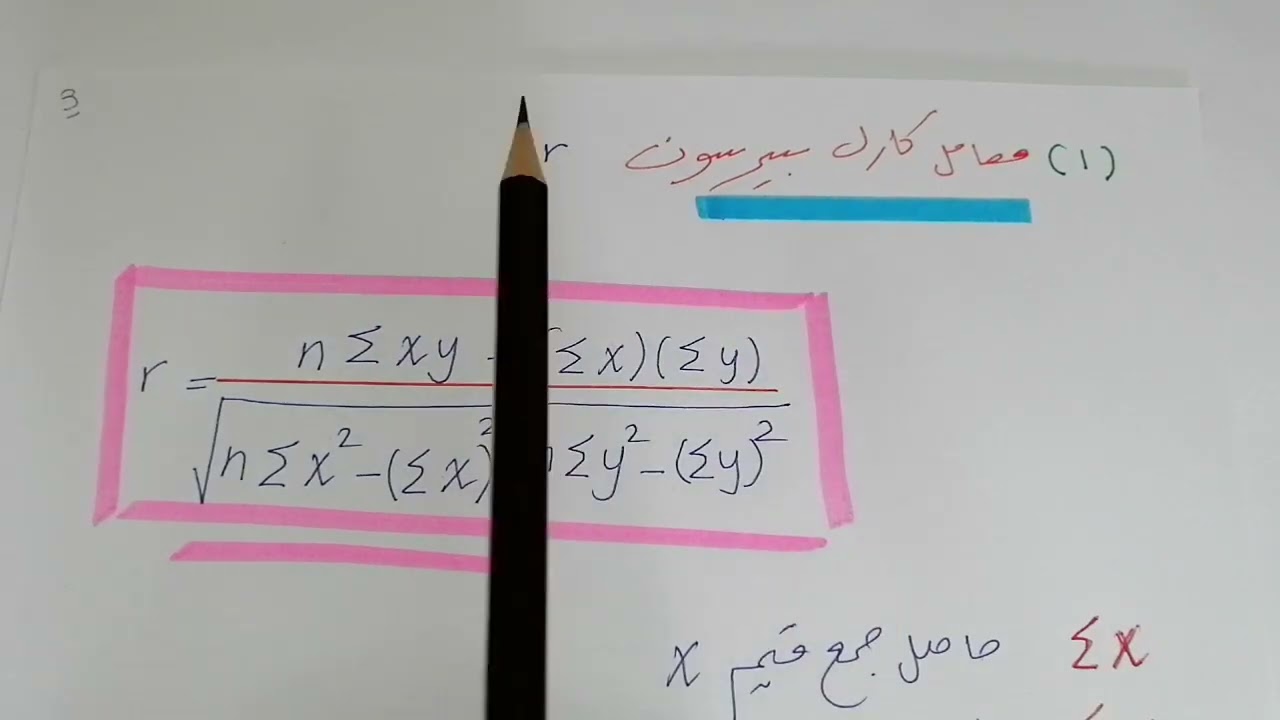 3
(١) معامل كارل بيرسون r
r = n Σxy - (Σx)(Σy)
√n Σx² - (Σx)² n Σy² - (Σy)²
Σx حاصل جمع قيم x